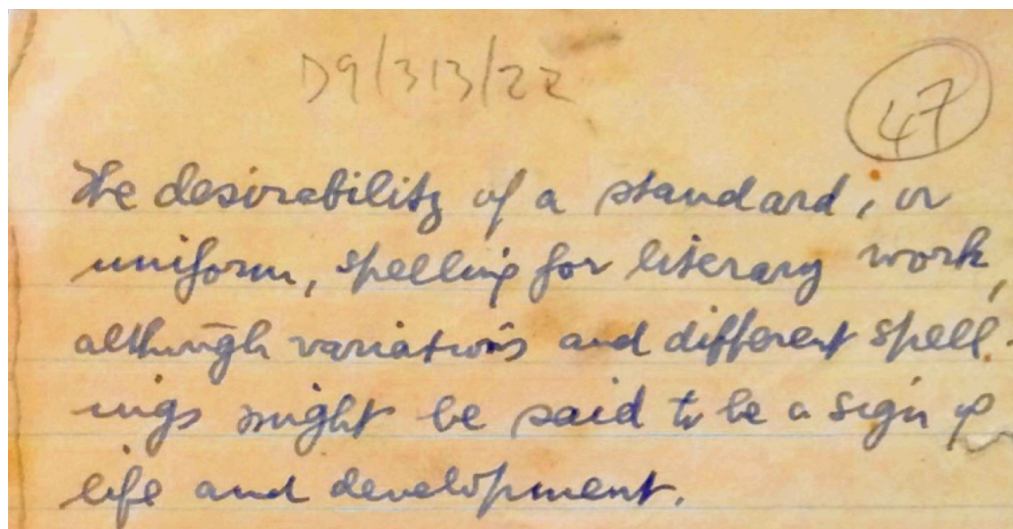 D9/313/22
47
The desirability of a standard, or
uniform, spelling for literary work,
although variations and different spell-
ings might be said to be a sign of
life and development.